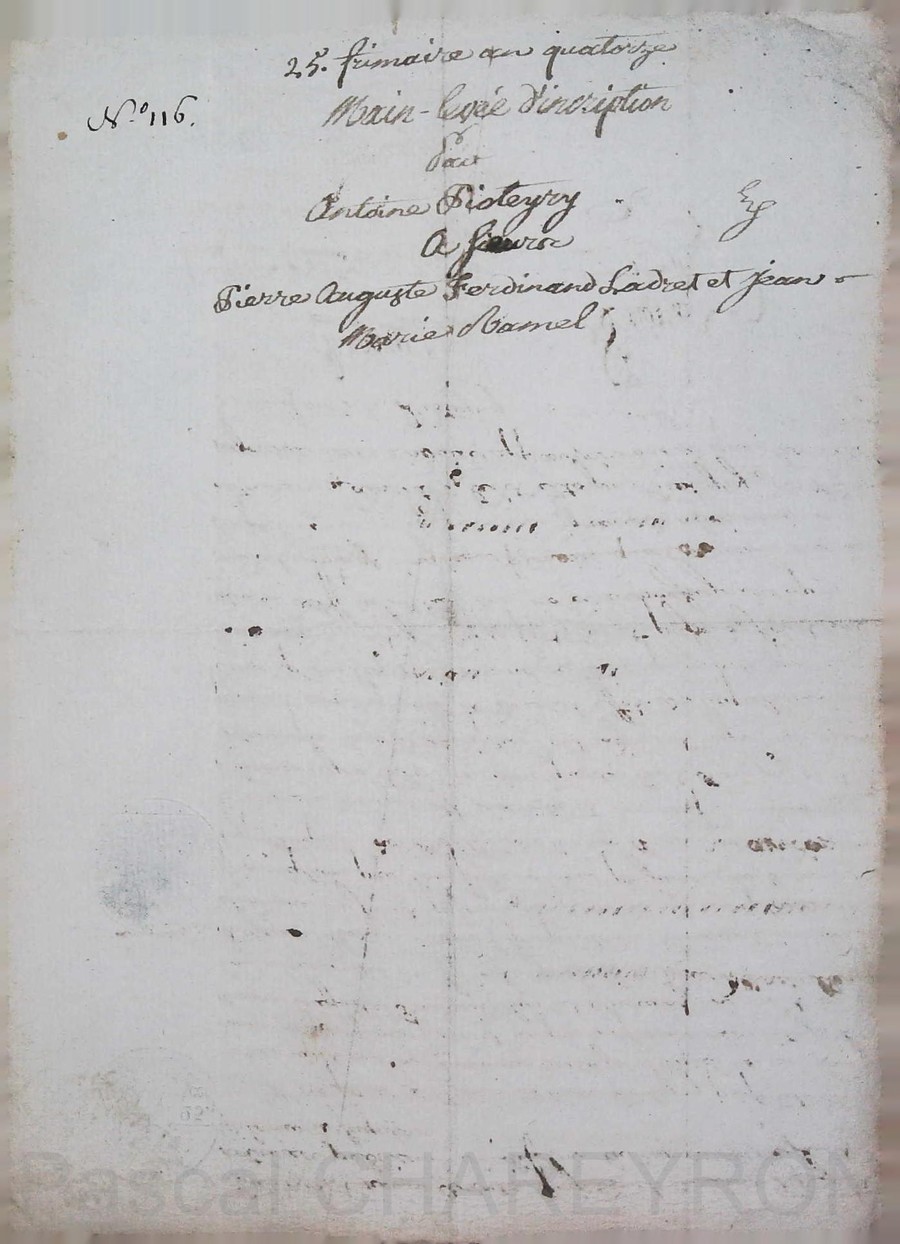 25. frimaire an quatorze
N.° 116.
Main-levée d'incription
Par
Antoine Pioteyry
A
Pierre Auguste Ferdinand Ladret et Jean
Marie Ramel
Pascal CHAREYRON